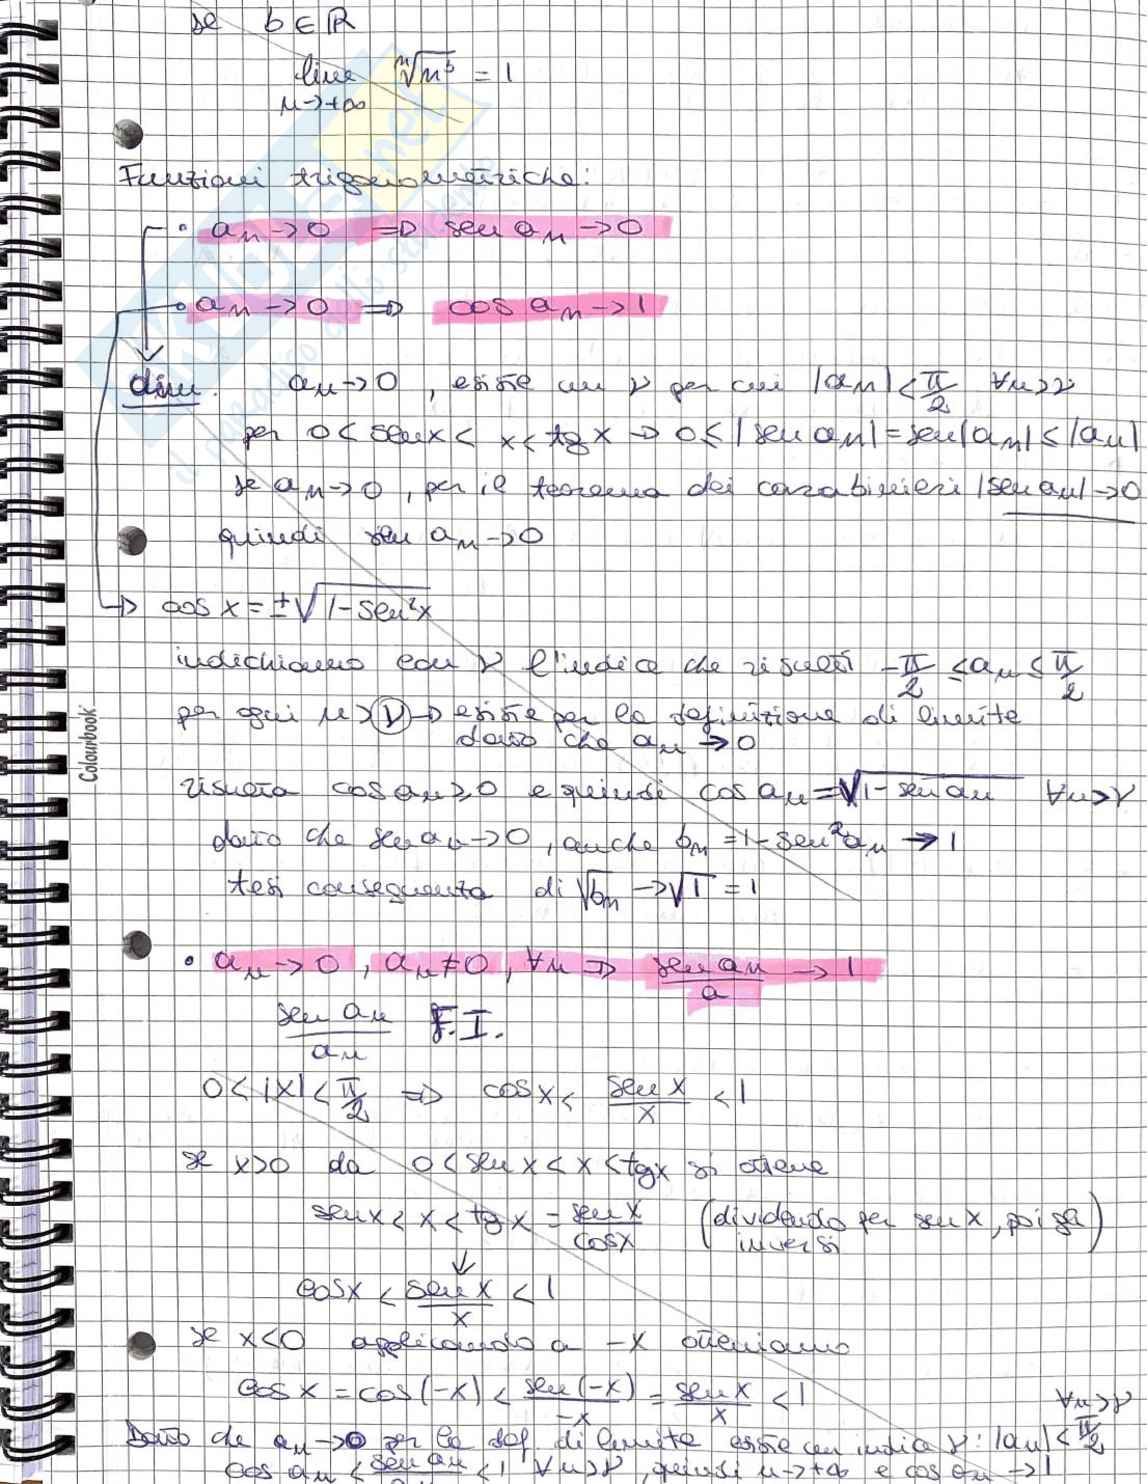 se b ∈ ℝ
lim ⁿ√n^b = 1
n→+∞
Funzioni trigonometriche:
• aₙ→0 ⇒ sen aₙ→0
• aₙ→0 ⇒ cos aₙ→1
dim. aₙ→0, esiste un ν per cui |aₙ|<π/2 ∀n>ν
per 0<senx< x<tgx → 0≤|sen aₙ|=sen|aₙ|≤|aₙ|
se aₙ→0, per il teorema dei carabinieri |sen aₙ|→0
quindi sen aₙ→0
→ cos x = ±√1-sen²x
indichiamo con ν l'indice che risulti -π/2 ≤aₙ≤ π/2
per ogni n>ν → esiste per la definizione di limite
dato che aₙ→0
risulta cos aₙ≥0 e quindi cos aₙ=√1-sen aₙ ∀n>ν
dato che sen aₙ→0, anche bₙ=1-sen²aₙ → 1
tesi conseguenza di √bₙ →√1 = 1
• aₙ→0, aₙ≠0, ∀n ⇒ sen aₙ/a → 1
sen aₙ/aₙ F.I.
0<|x|<π/2 ⇒ cosx< sen x/x <1
se x>0 da 0<sen x<x<tgx si ottiene
senx<x<tgx = senx/cosx (dividendo per sen x, poi gli inversi)
↓
cosx < sen x/x < 1
se x<0 applicando a -x otteniamo
cos x = cos(-x) < sen(-x)/-x = sen x/x < 1
Dato che aₙ→0 per la def. di limite esiste un indice ν: |aₙ|<π/2 ∀n>ν
cos aₙ < sen aₙ/aₙ <1 ∀n>ν, quindi n→+∞ e cos aₙ→1
Colourbook